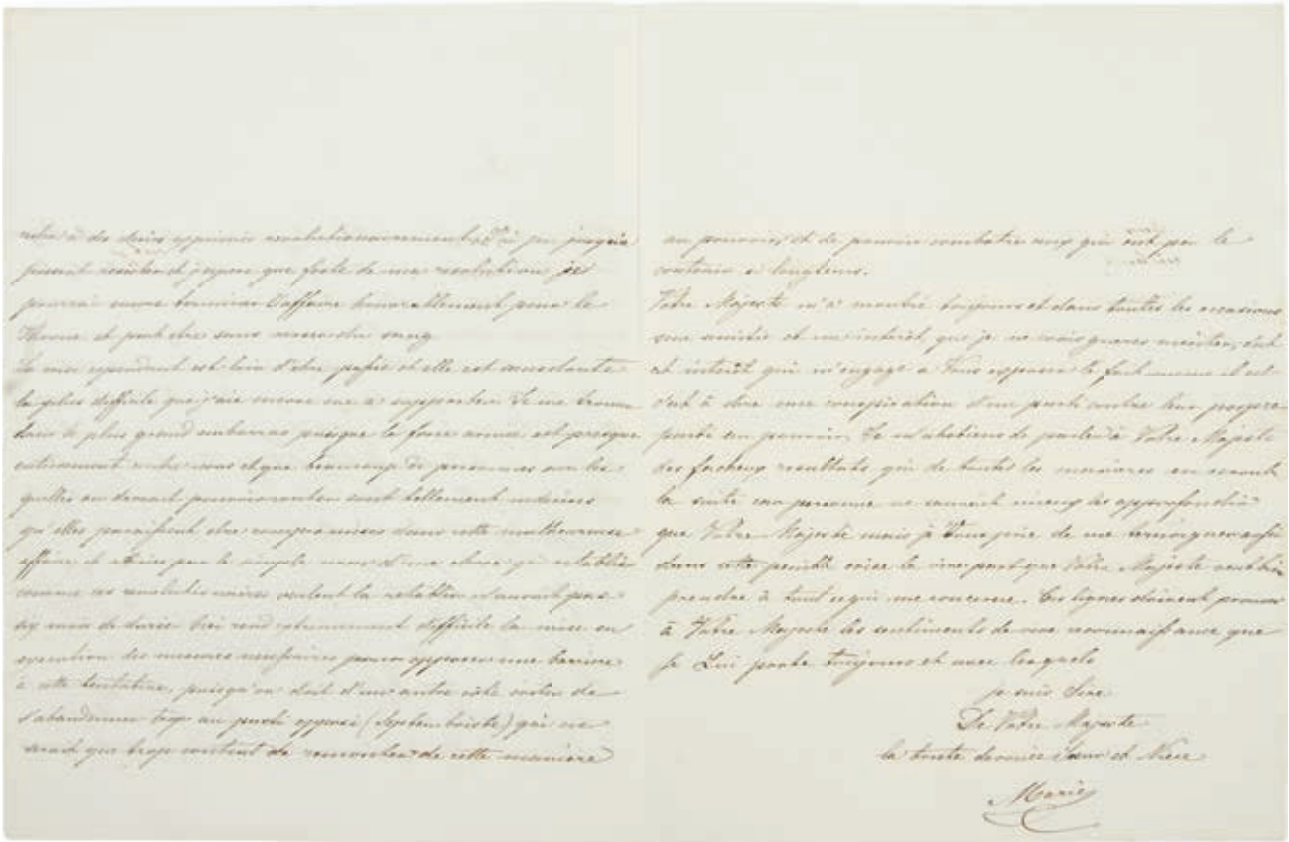 à des desirs exprimés revolutionnairement
puissent resister et j'espere que forte de ma resolution je
pourrai encore terminer l'affaire honorablement pour le
Throne et peut être sans repandre du sang
cependant est loin d'être passée et elle est
la plus difficile que j'aie encore eue à supporter. Je me trouve
dans le plus grand embarras puisque la force armée est presque
entierement et que beaucoup de personnes sur les
quelles on devrait pouvoir conter sont tellement
qu'elles paraissent être compromises dans cette malheureuse
affaire et par le simple d'une chose qui
comme ces revolutionnaires veulent la retablir n'aurait pas
six mois de durée. Ceci rend difficile la mise en
execution des mesures necessaires pour opposer une barriere
à cette tentative, puisqu'on doit d'un autre coté eviter de
s'abandonner trop au parti opposé (Septembriste) qui ne
serait que trop content de remonter de cette maniere
au pouvoir et de pouvoir combattre ceux qui ont pu le
contenir si longtems.
Votre Majesté m'a montré toujours et dans toutes les occasions
une amitié et un interêt que je ne crois gueres meriter, c'est
cet interêt qui m'engage à Vous exposer le fait comme il est
c'est à dire une conspiration d'un parti contre leur propre
parti au pouvoir. Je m'abstiens de parler à Votre Majesté
des facheux resultats qui de toutes les manieres en seront
la suite car personne ne saurait mieux les approfondir
que Votre Majesté mais je Vous prie de me temoigner aussi
dans cette penible crise la vive part que Votre Majesté veut bien
prendre à tout ce qui me concerne. Ces lignes doivent prouver
à Votre Majesté les sentiments de vive reconnaissance que
je Lui porte toujours et avec lesquels
je suis Sire
De Votre Majesté
la toute devouée Soeur et Niece
Marie